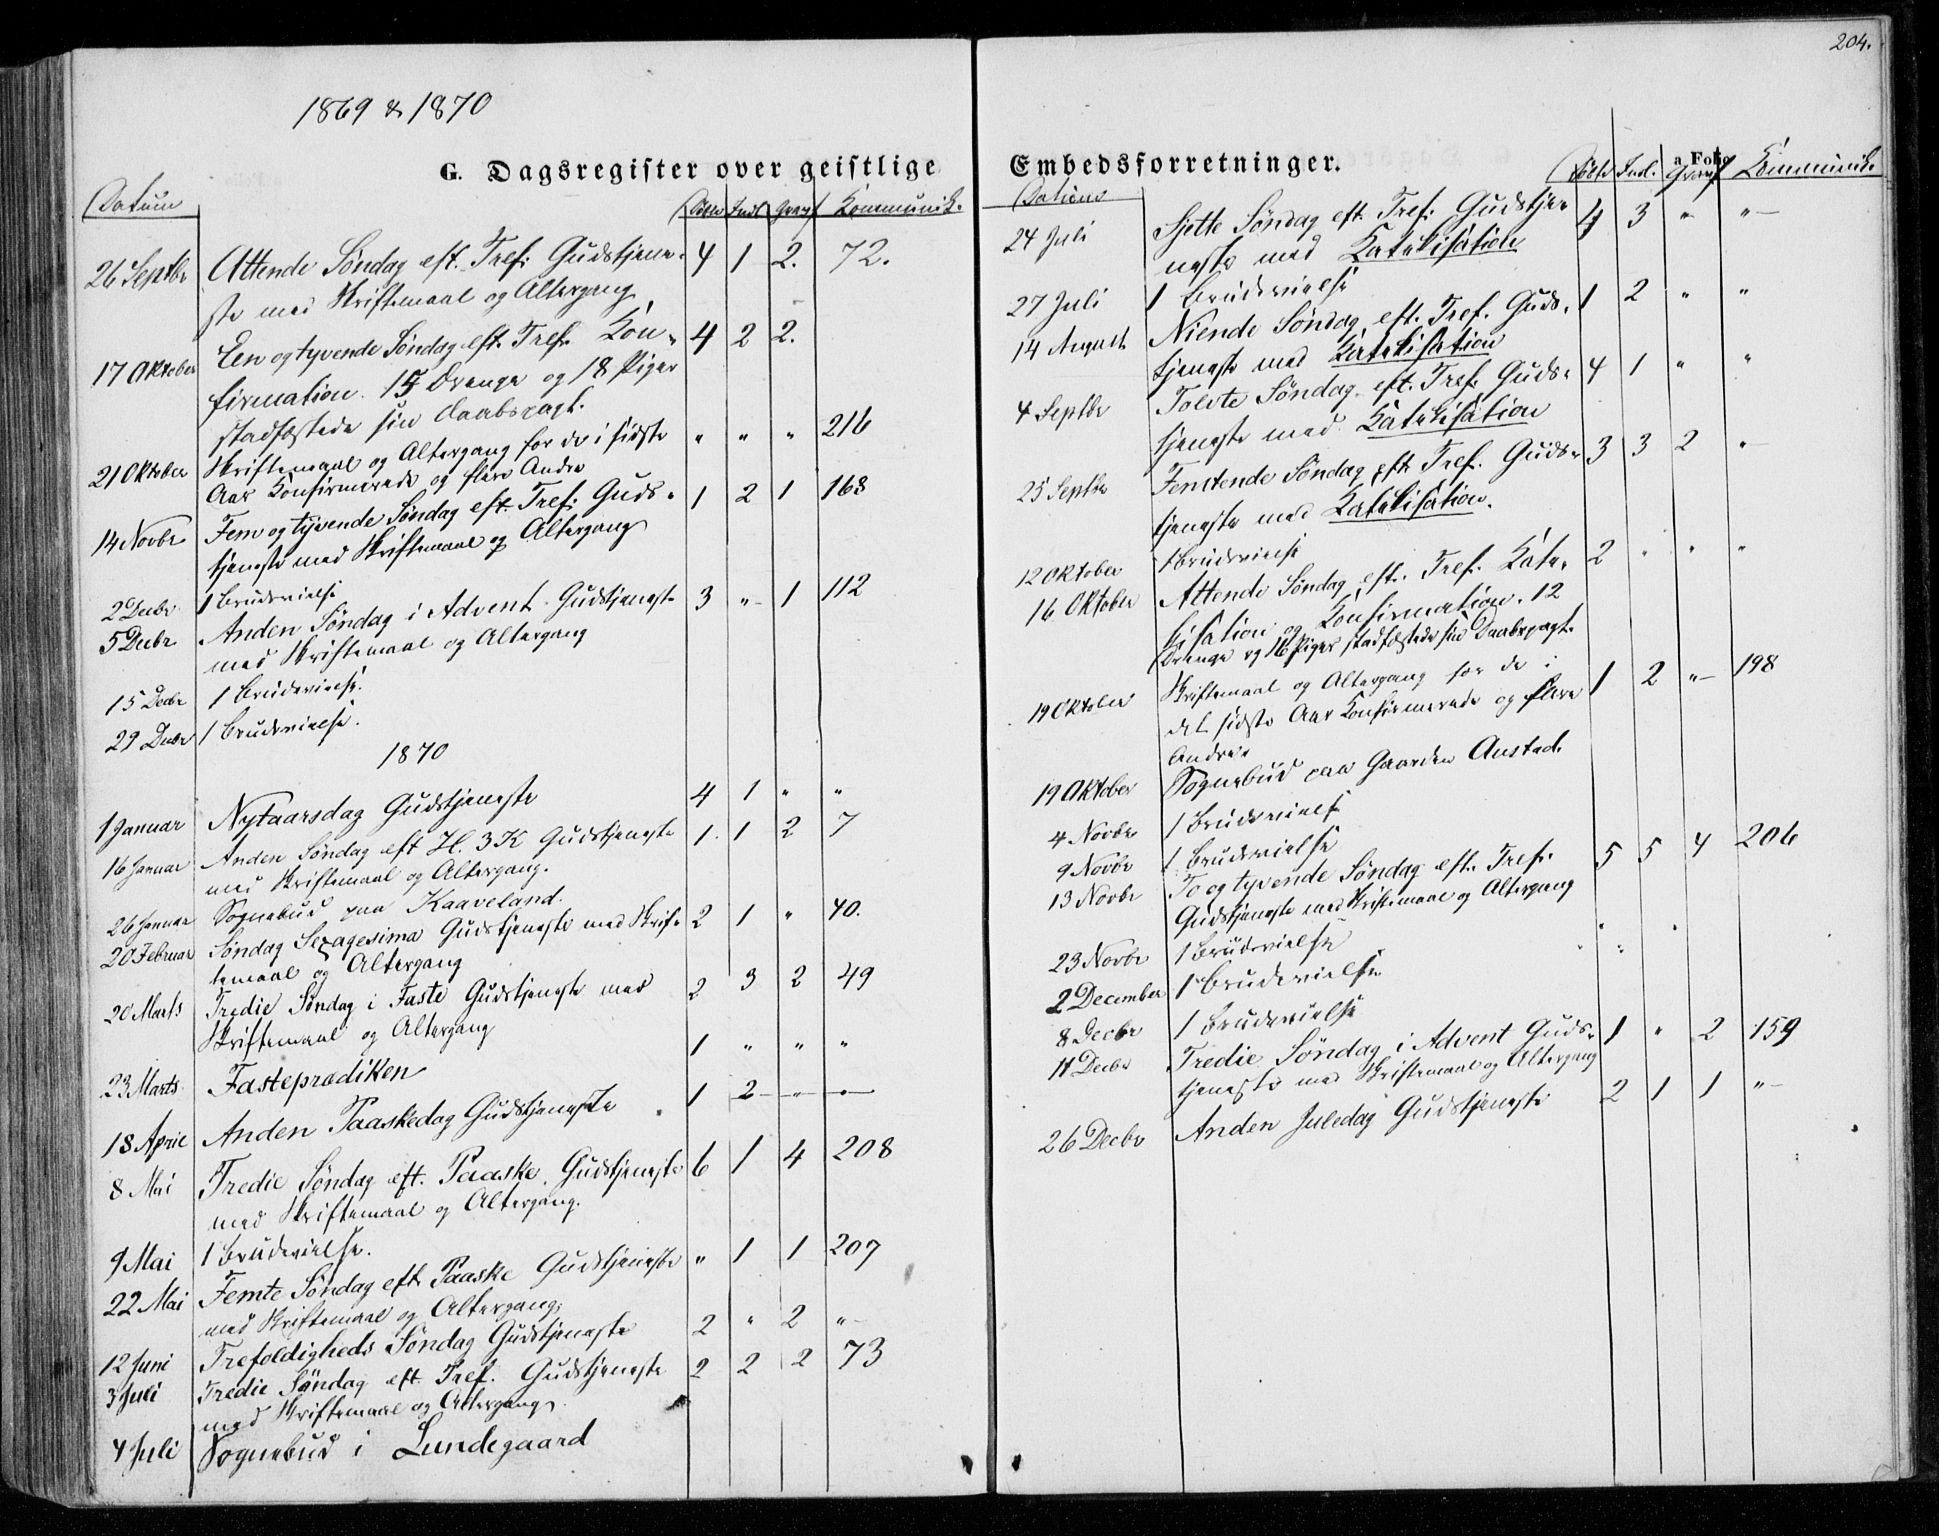 204.
1869 & 1870
G. Dagsregister over geistlige
Datum Døbte Indl Gravf Kommunik.
26 Septbr Attende Søndag eft. Tref: Gudstjene- 4 1 2. 72.
ste med Skriftemaal og Altergang
17 Oktober Een og tyvende Søndag eft. Tref. Kon- 4 2 2.
firmation. 15 Drenge og 18 Piger
stadfæstede sin Daabspagt.
21 Oktober Skriftemaal og Altergang for de i sidste " " " 216
Aar Konfirmerede og flere Andre
14 Novbr Fem og tyvende Søndag eft. Tref: Guds- 1 2 1 168
tjeneste med Skriftemaal og Altergang
2 Decbr 1 Brudevielse
5 Decbr Anden Søndag i Advent Gudstjeneste 3 " 1 112
med Skriftemaal og Altergang
15 Decbr 1 Brudevielse.
29 Decbr 1 Brudevielse.
1870
1 Januar Nytaarsdag Gudstjeneste 4 1 " "
16 Januar Anden Søndag eft H. 3 K Gudstjeneste 1. 1 2 7
med Skriftemaal og Altergang.
26 Januar Sognebud paa Kaaveland.
20 Februar Søndag Sexagesima Gudstjeneste med Skrif- 2 1 " 40.
temaal og Altergang
20 Marts Tredie Søndag i Faste Gudstjeneste med 2 3 2 49
Skriftemaal og Altergang
23 Marts Fasteprædiken 1 " " "
18 April Anden Paaskedag Gudstjeneste 1 2 " "
8 Mai Tredie Søndag eft. Paaske. Gudstjeneste 6 1 4 208
med Skriftemaal og Altergang.
9 Mai 1 Brudevielse.
22 Mai Femte Søndag eft Paaske Gudstjeneste " 1 1 207
med Skriftemaal og Altergang.
12 Juni Trefoldigheds Søndag Gudstjeneste 2 " 2 "
3 Juli Tredie Søndag eft. Tref. Gudstjeneste 2 2 2 73
med Skriftemaal og Altergang
4 Juli Sognebud i Lundegaard
Embedsforretninger.
a Folio
Datum Døbte Indl. Gravf Kommunik.
24 Juli Sjette Søndag eft. Tref: Gudstje- 4 3 " "
neste med Katekisation
27 Juli 1 Brudevielse
14 August Niende Søndag eft. Tref. Guds- 1 2 " "
tjeneste med Katekisation
4 Septbr Tolvte Søndag eft. Tref. Guds- 4 1 " "
tjeneste med Katekisation
25 Septbr Femtende Søndag eft Tref. Guds- 3 3 2 "
tjeneste med Katekisation.
12 Oktober 1 Brudevielse
16 Oktober Attende Søndag eft. Tref. Kate- 2 " " "
kisation og Konfirmation. 12
Drenge og 16 Piger stadfæstede sin Daabspagt.
19 Oktober Skriftemaal og Altergang for de i 1 2 " 198
det sidste Aar Konfirmerede og flere
Andre.
19 Oktober Sognebud paa Gaarden Austad.
4 Novbr 1 Brudevielse
9 Novbr 1 Brudevielse
13 Novbr To og tyvende Søndag eft. Tref. 5 5 4 206
Gudstjeneste med Skriftemaal og Altergang
23 Novbr 1 Brudevielse
2 December 1 Brudevielse
8 Decbr 1 Brudevielse
11 Decbr Tredie Søndag i Advent Guds- 1 " 2 159
tjeneste med Skriftemaal og Altergang
26 Decbr Anden Juledag Gudstjeneste 2 1 1 "